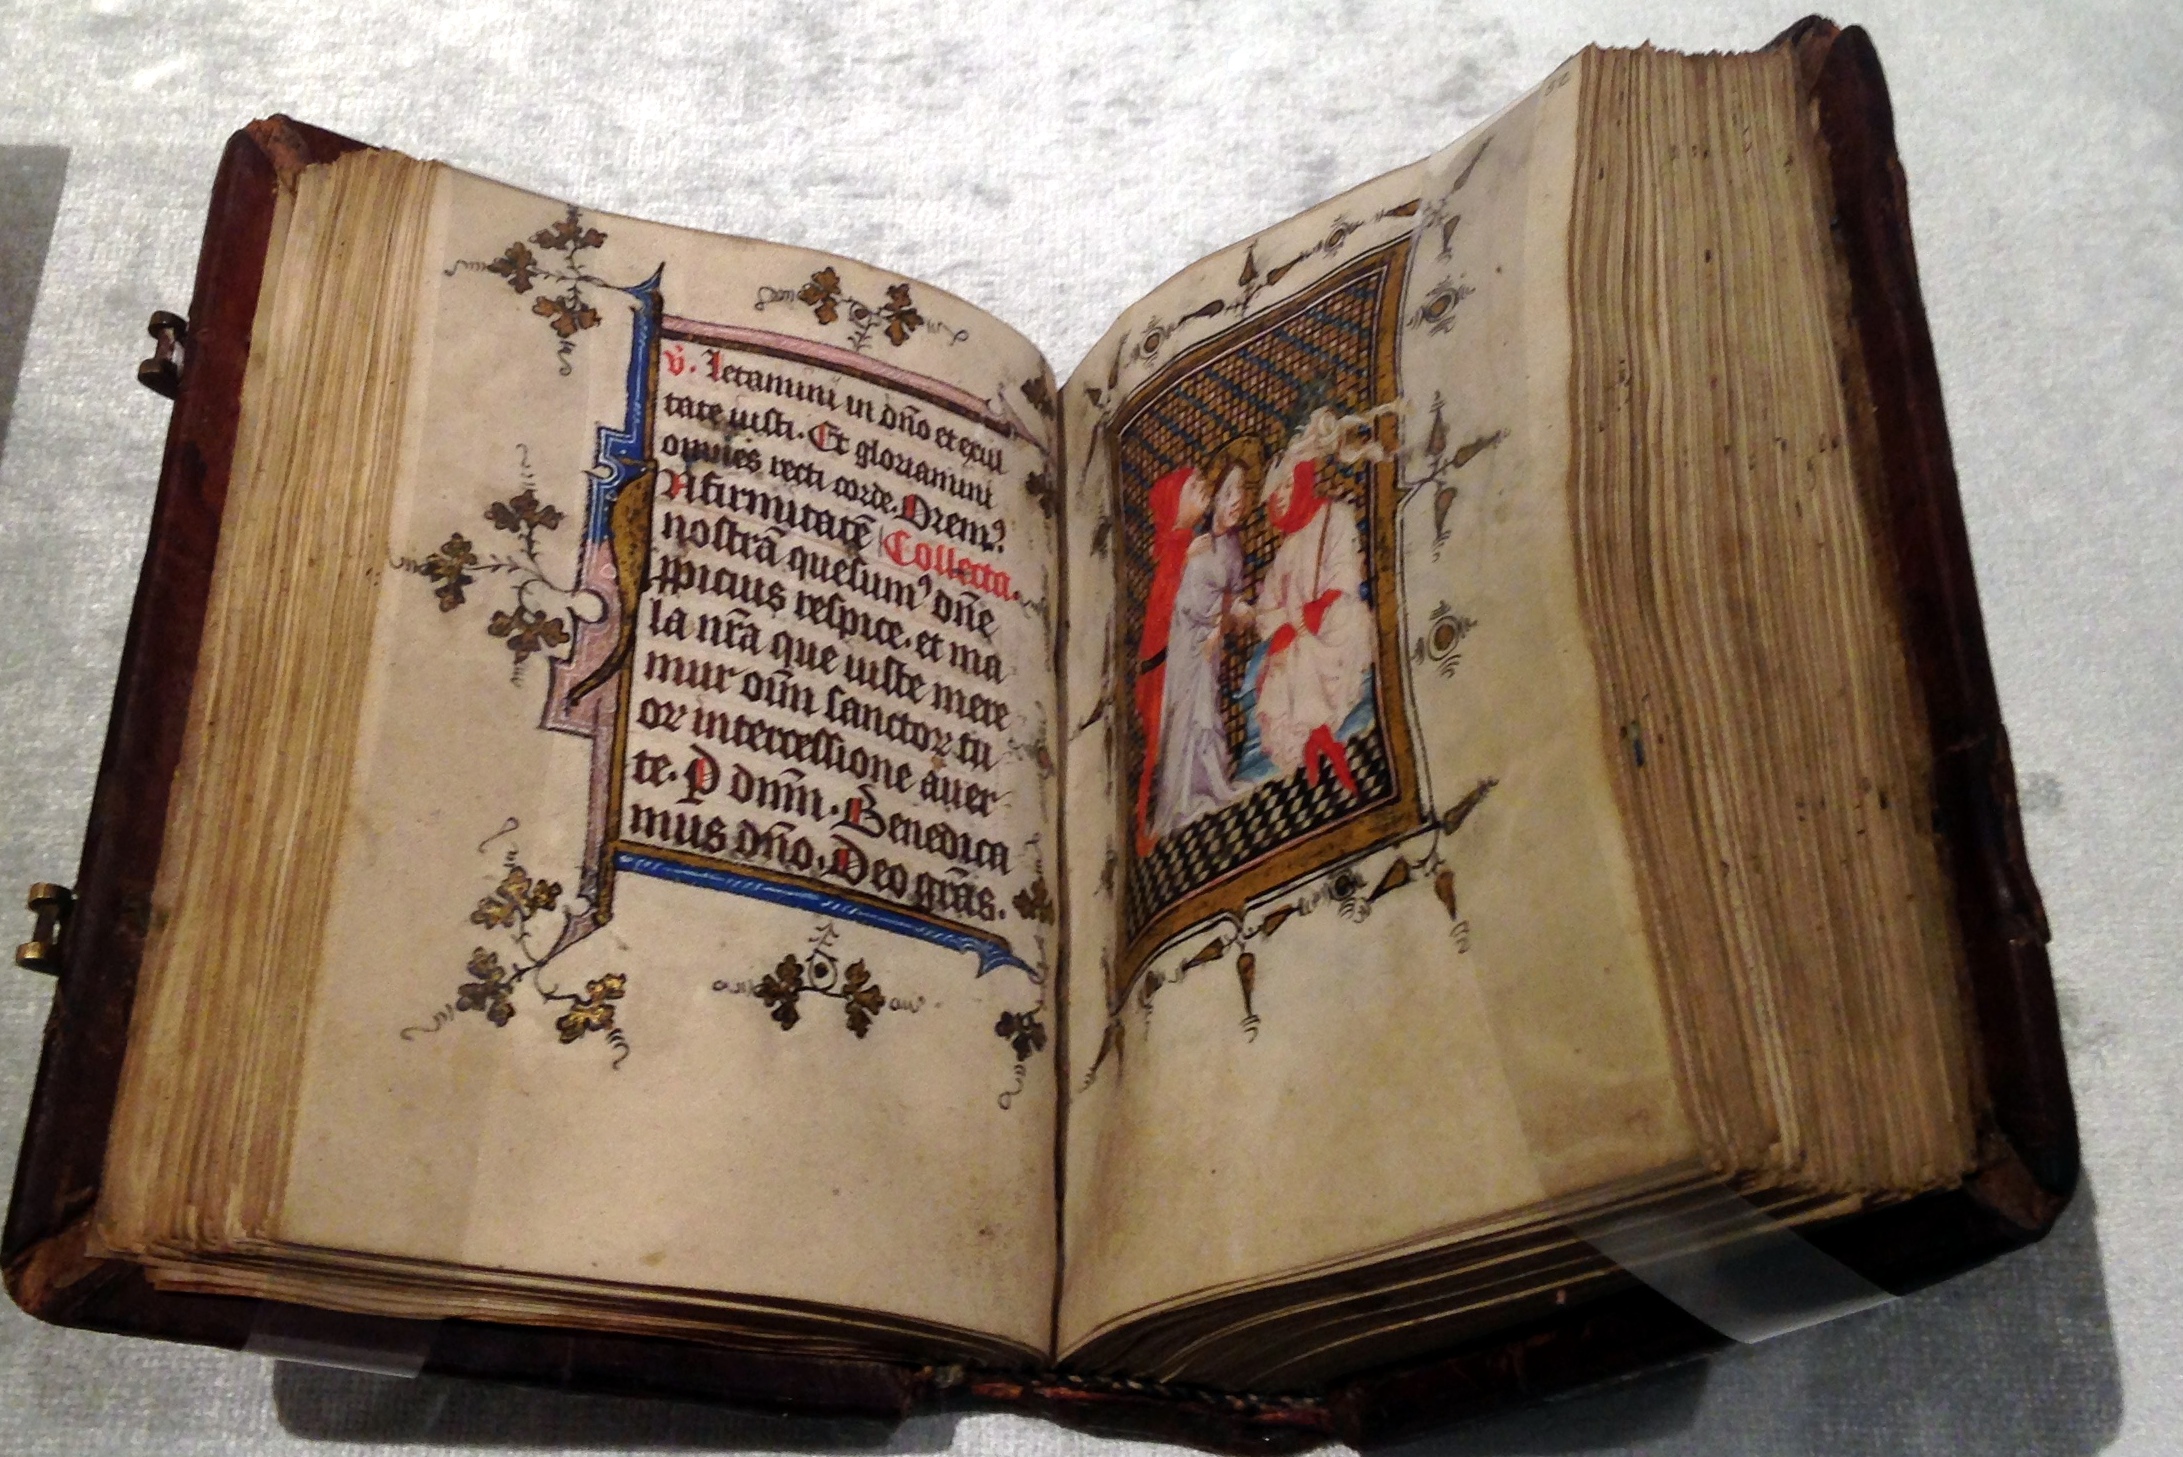 v̄. Letamini in dn̄o et exul
tate iusti. Et gloriamini
omnes recti corde. Orem⁹.
Nfirmitatē Collecta.
nostrā quesum⁹ dn̄e
ꝓpicius respice. et ma
la nr̄a que iuste mere
mur oīm sanctoꝝ tu
oꝝ intercessione auer
te. P dmn̄. Benedica
mus dn̄o. Deo grās.